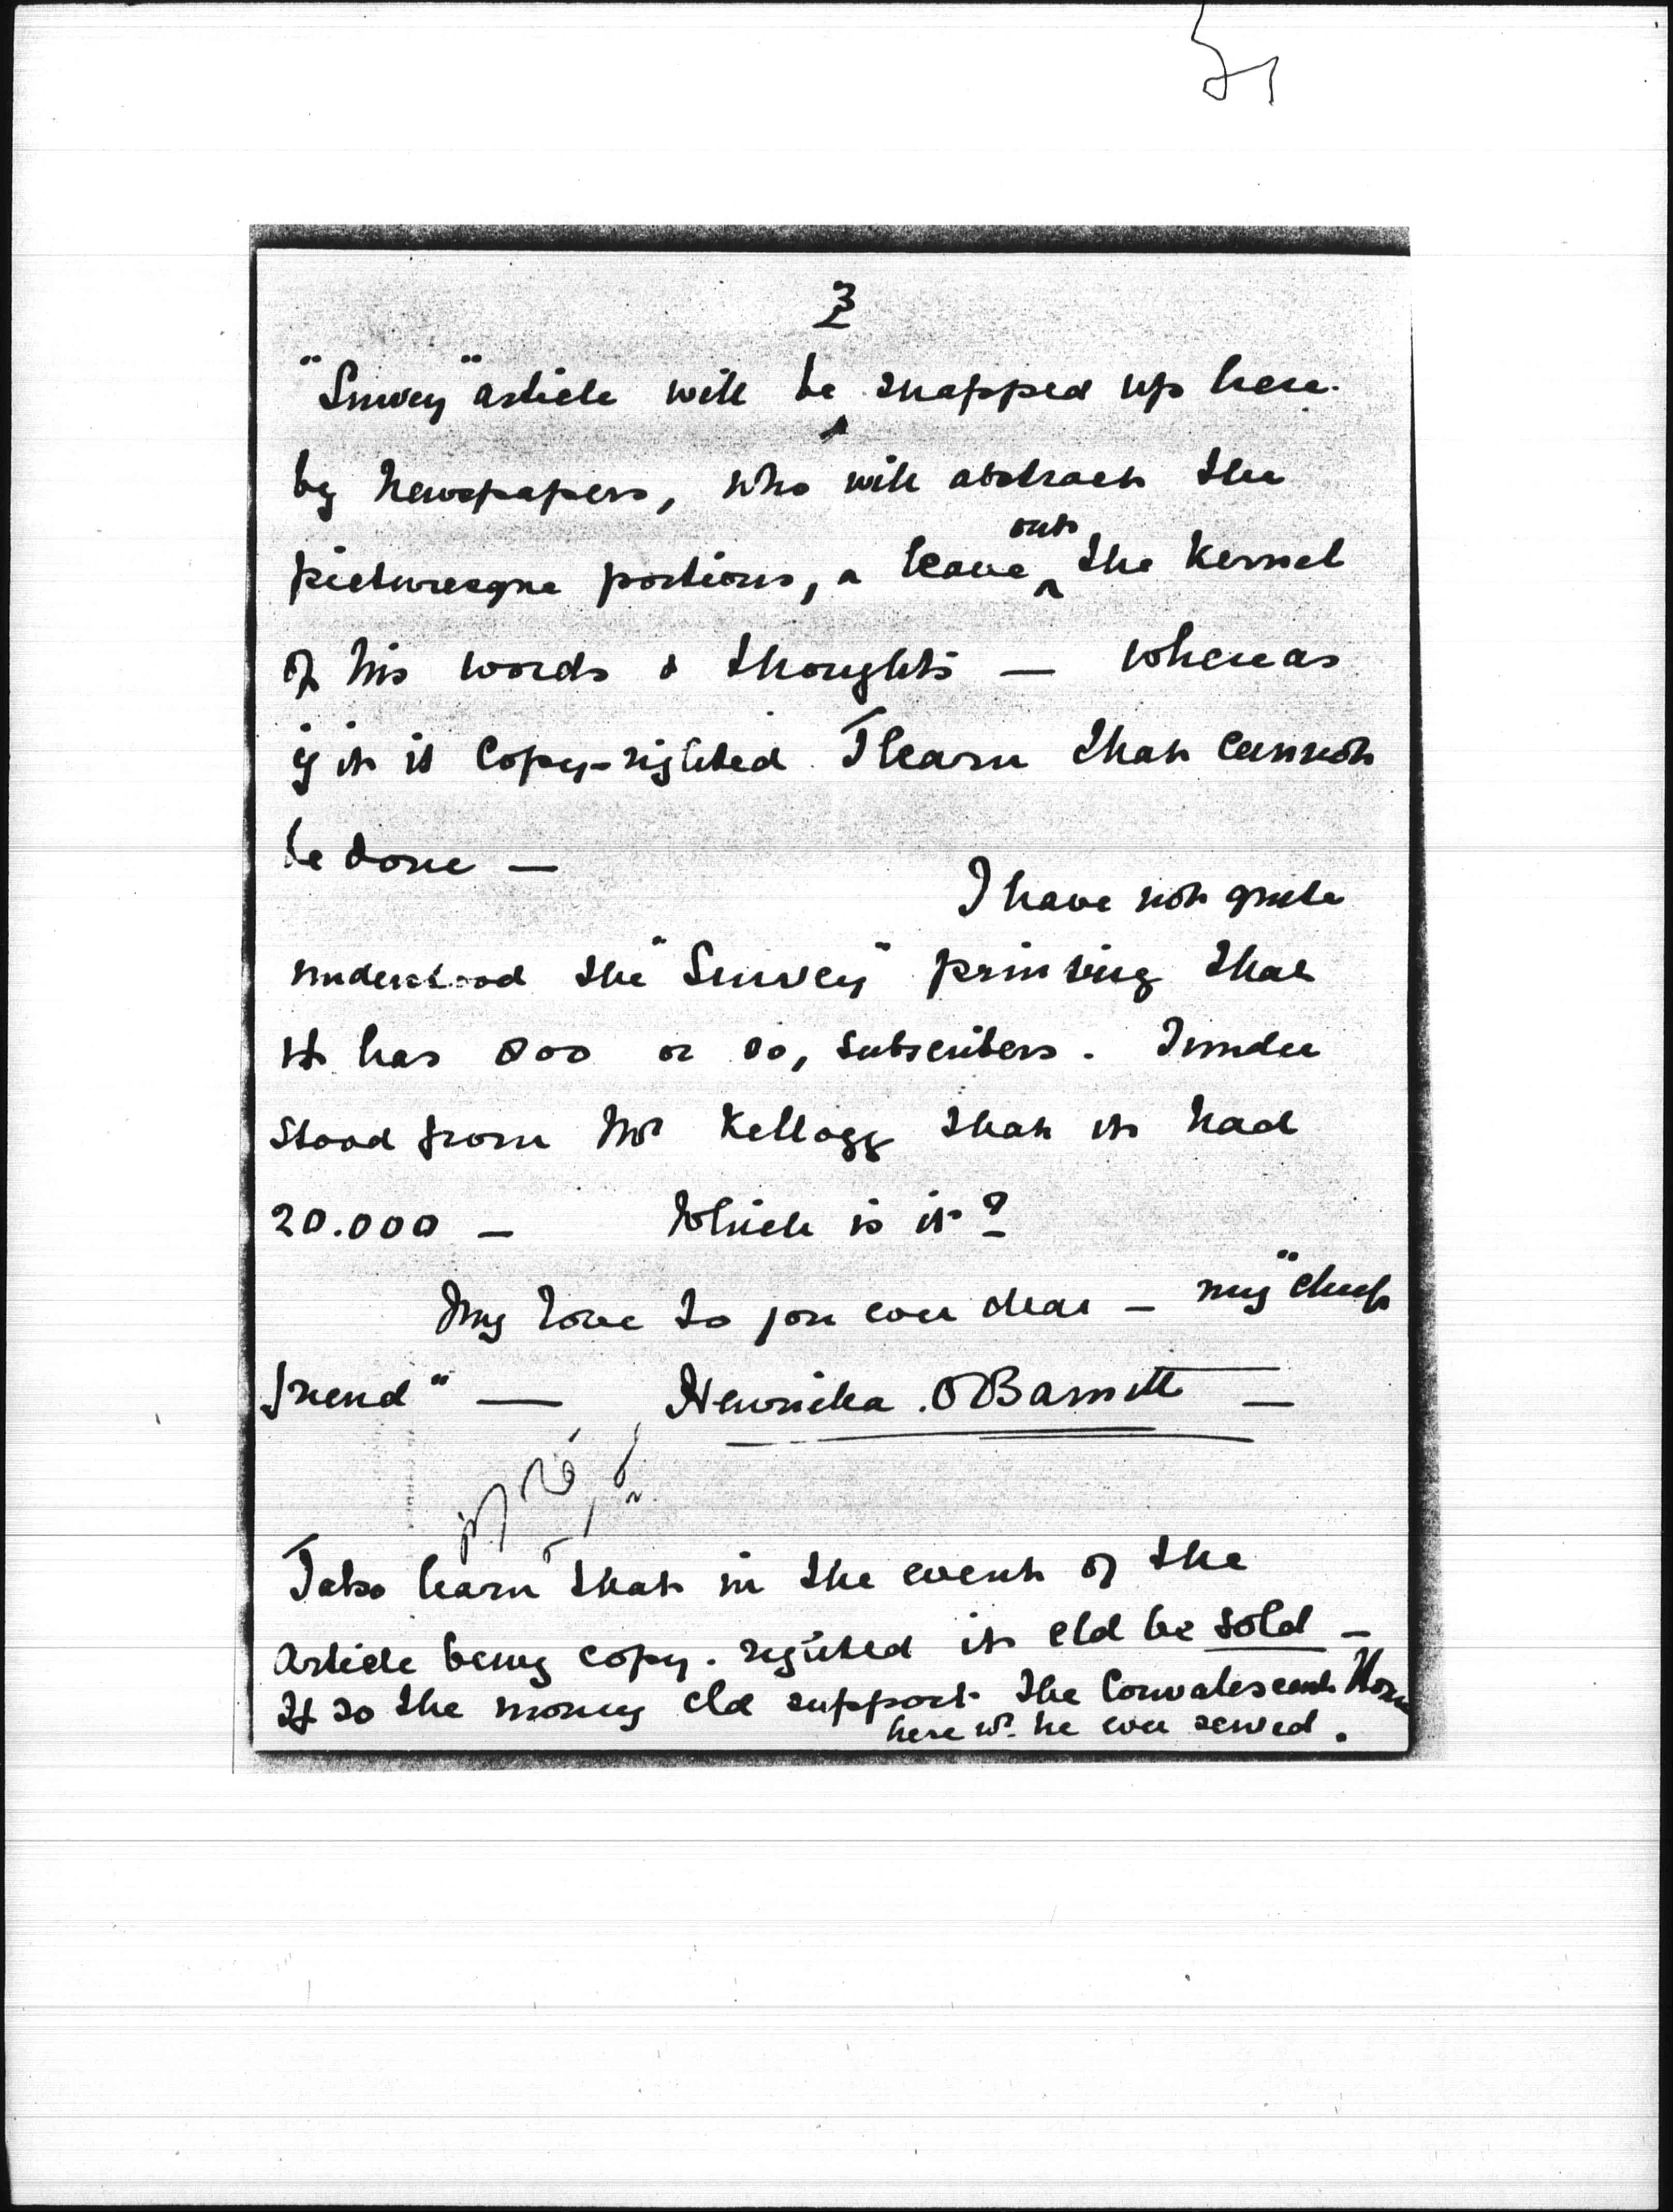 3
"Survey" article will be snapped up here
by Newspapers, who will abstract the
picturesque portions, & leave out the Kernel
of his words & thoughts — whereas
if it is Copy-righted I learn that cannot
be done —
I have not quite
understood the "Survey" printing that
it has 800 or so, subscribers. I under
stood from Mr Kellogg that it had
20.000 — Which is it?
My love to you ever dear — my "chief
friend" — Henrietta O Barnett —
I also learn that in the event of the
article being copy-righted it cld be sold —
If so the money cld support the Convalescent Home
here wh. he ever served.